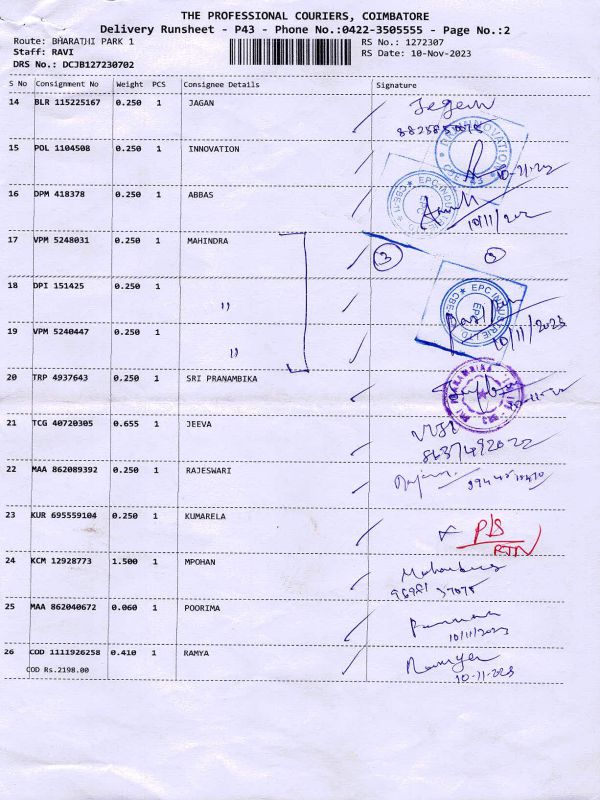 THE PROFESSIONAL COURIERS, COIMBATORE
Delivery Runsheet - P43 - Phone No.:0422-3505555 - Page No.:2
Route: BHARATHI PARK 1 RS No.: 1272307
Staff: RAVI RS Date: 10-Nov-2023
DRS No.: DCJB127230702
S No Consignment No Weight PCS Consignee Details Signature
14 BLR 115225167 0.250 1 JAGAN
15 POL 1104508 0.250 1 INNOVATION
16 DPM 418378 0.250 1 ABBAS
10/11/202
17 VPM 5248031 0.250 1 MAHINDRA 3
18 DPI 151425 0.250 1 "
EPC INDUSTRIE LTD
CBE-9
EPC
10/11/2023
19 VPM 5240447 0.250 1 "
20 TRP 4937643 0.250 1 SRI PRANAMBIKA
21 TCG 40720305 0.655 1 JEEVA
8637492022
22 MAA 862089392 0.250 1 RAJESWARI
23 KUR 695559104 0.250 1 KUMARELA
P/S
RTN
24 KCM 12928773 1.500 1 MPOHAN
25 MAA 862040672 0.060 1 POORIMA
10/11/2023
26 COD 1111926258 0.410 1 RAMYA Ramya
COD Rs.2198.00 10-11-223